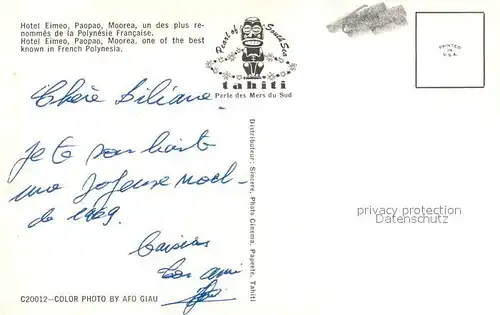 Hotel Eimeo, Paopao, Moorea, un des plus re-
nommés de la Polynésie Française.
Hotel Eimeo, Paopao, Moorea, one of the best
known in French Polynesia.
Pearl of South Sea
tahiti
Perle des Mers du Sud
PRINTED
IN
U.S.A.
Chère Liliane
Je te souhaite
une Joyeuse Noel
de 1969.
ton ami
Distributeur: Sincere, Photo Cinema, Papeete, Tahiti
privacy protection
Datenschutz
C20012—COLOR PHOTO BY AFO GIAU